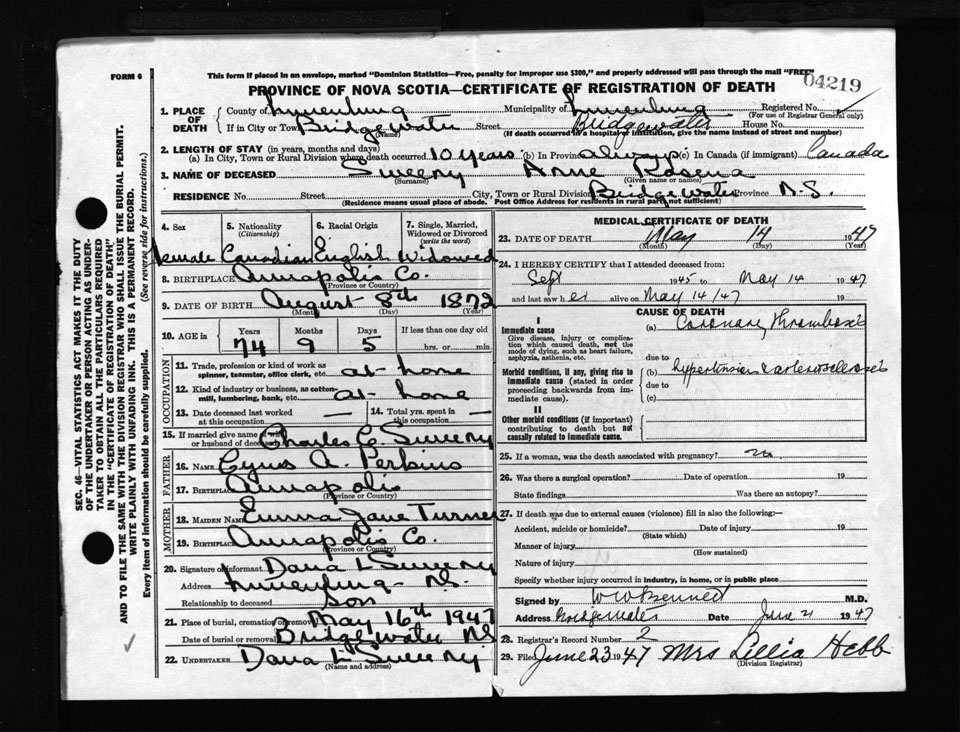 FORM 6
This form if placed in an envelope, marked "Dominion Statistics—Free, penalty for improper use $300," and properly addressed will pass through the mail "FREE"
04219
PROVINCE OF NOVA SCOTIA—CERTIFICATE OF REGISTRATION OF DEATH
1. PLACE OF DEATH County of Lunenburg Municipality of Lunenburg Registered No.
(For use of Registrar General only)
If in City or Town Bridgewater Street Bridgewater House No.
(Name) (If death occurred in a hospital or institution, give the name instead of street and number)
2. LENGTH OF STAY (in years, months and days)
(a) In City, Town or Rural Division where death occurred 10 years (b) In Province always (c) In Canada (if immigrant) Canada
3. NAME OF DECEASED Sweeny Anne Rosena
(Surname) (Given name or names)
RESIDENCE No. Street City, Town or Rural Division Bridgewater Province N.S.
(Residence means usual place of abode. Post Office Address for residents in rural part not sufficient)
4. Sex 5. Nationality (Citizenship) 6. Racial Origin 7. Single, Married, Widowed or Divorced (write the word)
Female Canadian English Widowed
8. BIRTHPLACE Annapolis Co.
(Province or Country)
9. DATE OF BIRTH August 8th 1872
(Month) (Day) (Year)
10. AGE in Years Months Days If less than one day old
74 9 5 hrs. or min.
OCCUPATION
11. Trade, profession or kind of work as spinner, teamster, office clerk, etc. at home
12. Kind of industry or business, as cotton-mill, lumbering, bank, etc. at home
13. Date deceased last worked at this occupation — 14. Total yrs. spent in this occupation —
15. If married give name of wife or husband of deceased Charles E. Sweeny
FATHER
16. NAME Cyrus A. Perkins
17. BIRTHPLACE Annapolis
(Province or Country)
MOTHER
18. MAIDEN NAME Emma Jane Turner
19. BIRTHPLACE Annapolis Co.
(Province or Country)
20. Signature of informant Dana L Sweeny
Address Lunenburg - N.S.
Relationship to deceased Son
21. Place of burial, cremation or removal May 16th 1947
Date of burial or removal Bridgewater NS
22. UNDERTAKER Dana L Sweeny
(Name and address)
MEDICAL CERTIFICATE OF DEATH
23. DATE OF DEATH May 14 1947
(Month) (Day) (Year)
24. I HEREBY CERTIFY that I attended deceased from:
Sept 1945 to May 14 1947
and last saw her alive on May 14/47 19
CAUSE OF DEATH
I
Immediate cause
Give disease, injury or complication which caused death, not the mode of dying, such as heart failure, asphyxia, asthenia, etc.
(a) Coronary thrombosis
due to
Morbid conditions, if any, giving rise to immediate cause (stated in order proceeding backwards from immediate).
(b) hypertension & arteriosclerosis
due to
(c)
II
Other morbid conditions (if important) contributing to death but not causally related to immediate cause.
25. If a woman, was the death associated with pregnancy? no
26. Was there a surgical operation? Date of operation 19
State findings Was there an autopsy?
27. If death was due to external causes (violence) fill in also the following:—
Accident, suicide or homicide? Date of injury 19
(State which)
Manner of injury
(How sustained)
Nature of injury
Specify whether injury occurred in industry, in home, or in public place
Signed by W W Bennett M.D.
Address Bridgewater Date June 21 1947
28. Registrar's Record Number 2
29. Filed June 23 1947 Mrs Lillia Hebb
(Division Registrar)
SEC. 46—VITAL STATISTICS ACT MAKES IT THE DUTY
OF THE UNDERTAKER OR PERSON ACTING AS UNDER-
TAKER TO OBTAIN ALL THE PARTICULARS REQUIRED
IN THE "CERTIFICATE OF REGISTRATION OF DEATH"
AND TO FILE THE SAME WITH THE DIVISION REGISTRAR WHO SHALL ISSUE THE BURIAL PERMIT.
WRITE PLAINLY WITH UNFADING INK. THIS IS A PERMANENT RECORD.
Every item of information should be carefully supplied. (See reverse side for instructions.)